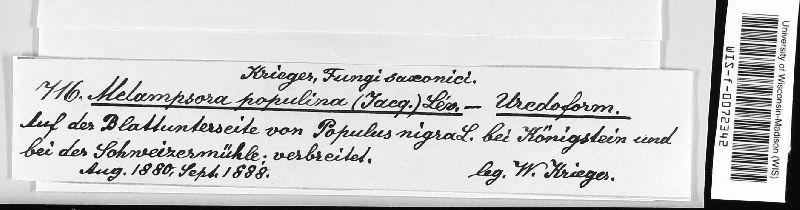 Krieger, Fungi saxonici.
716. Melampsora populina (Jacq.) Lév. — Uredoform.
Auf der Blattunterseite von Populus nigra L. bei Königstein und
bei der Schweizermühle; verbreitet.
Aug. 1880, Sept. 1888. leg. W. Krieger.
University of Wisconsin-Madison (WIS)
WIS-F-0072342